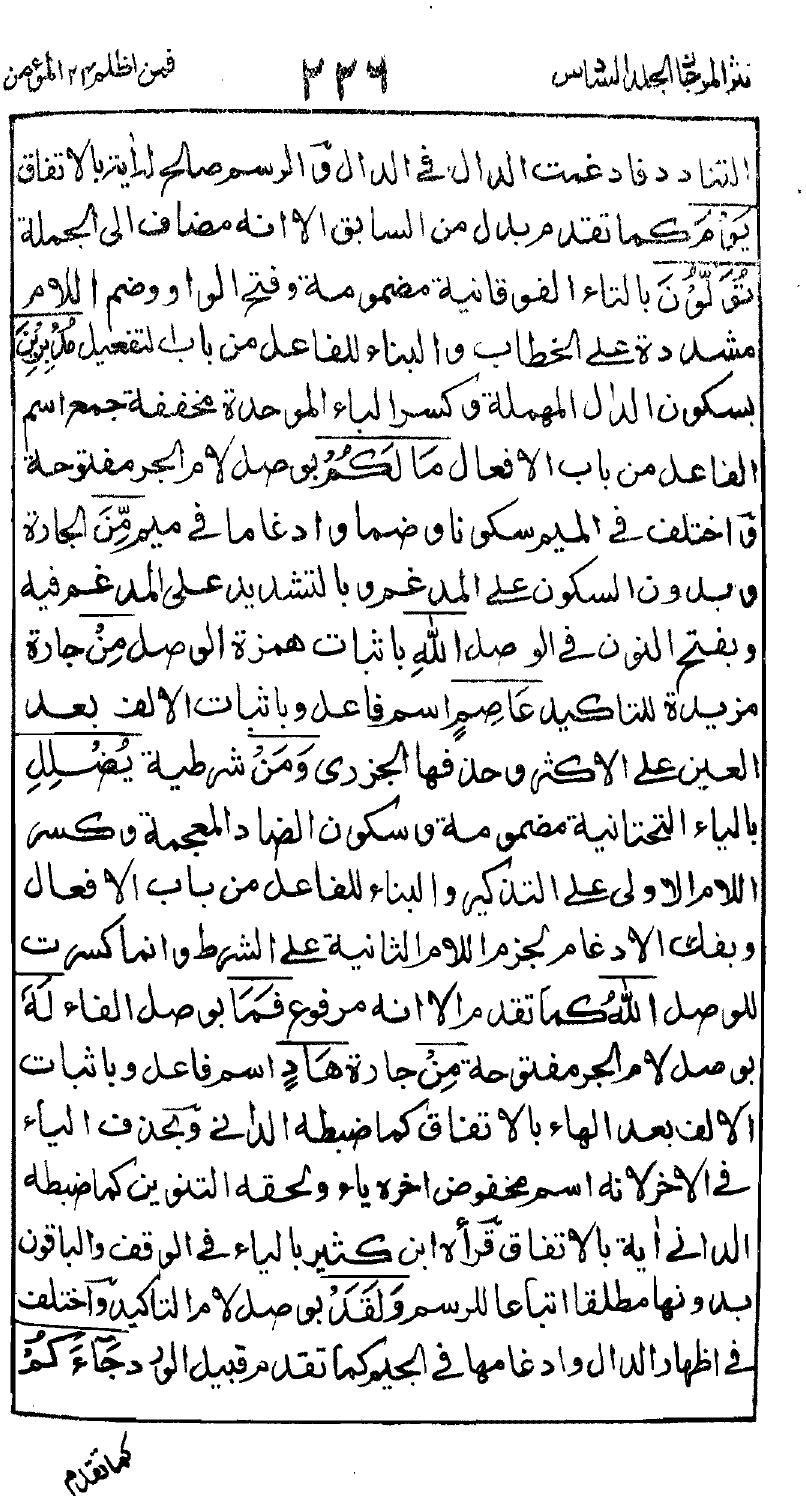 نثر المرجان الجلد السادس ٢٢٦ فمن اظلم ٢٤ المؤمن
التنادد فادغمت الدال في الدال و الرسم صالح لرأيته بالاتفاق
يَوْمَ كما تقدم بدل من السابق الا انه مضاف الى الجملة
تُوَلُّوْنَ بالتاء الفوقانية مضمومة وفتح الواو وضم اللام
مشددة على الخطاب والبناء للفاعل من باب التفعيل مُدْبِرِيْنَ
بسكون الدال المهملة وكسر الباء الموحدة مخففة جمع اسم
الفاعل من باب الافعال مَا لَكُمْ بوصل لام الجر مفتوحة
واختلف في الميم سكونا وضما وادغاما في ميم مِّنَ الجارة
وبدون السكون على المدغم وبالتشديد على المدغم فيه
وبفتح النون في الوصل اللهِ باثبات همزة الوصل مِنْ جارة
مزيدة للتاكيد عَاصِمٍ اسم فاعل وباثبات الالف بعد
العين على الاكثر وحذفها الجزرى وَمَنْ شرطية يُضْلِلِ
بالياء التحتانية مضمومة وسكون الضاد المعجمة وكسر
اللام الاولى على التذكير والبناء للفاعل من باب الافعال
وبفك الادغام لجزم اللام الثانية على الشرط وانما كسرت
للوصل اللهُ كما تقدم الا انه مرفوع فَمَا بوصل الفاء لَهٗ
بوصل لام الجر مفتوحة مِنْ جارة هَادٍ اسم فاعل وباثبات
الالف بعد الهاء بالاتفاق كما ضبطه الداني وبحذف الياء
في الاخر لانه اسم مخفوض اخره ياء ولحقه التنوين كما ضبطه
الداني أية بالاتفاق قرأه ابن كثير بالياء في الوقف والباقون
بدونها مطلقا اتباعا للرسم وَلَقَدْ بوصل لام التاكيد واختلف
في اظهار الدال وادغامها في الجيم كما تقدم قبيل الورد جَآءَكُمْ
كما تقدم